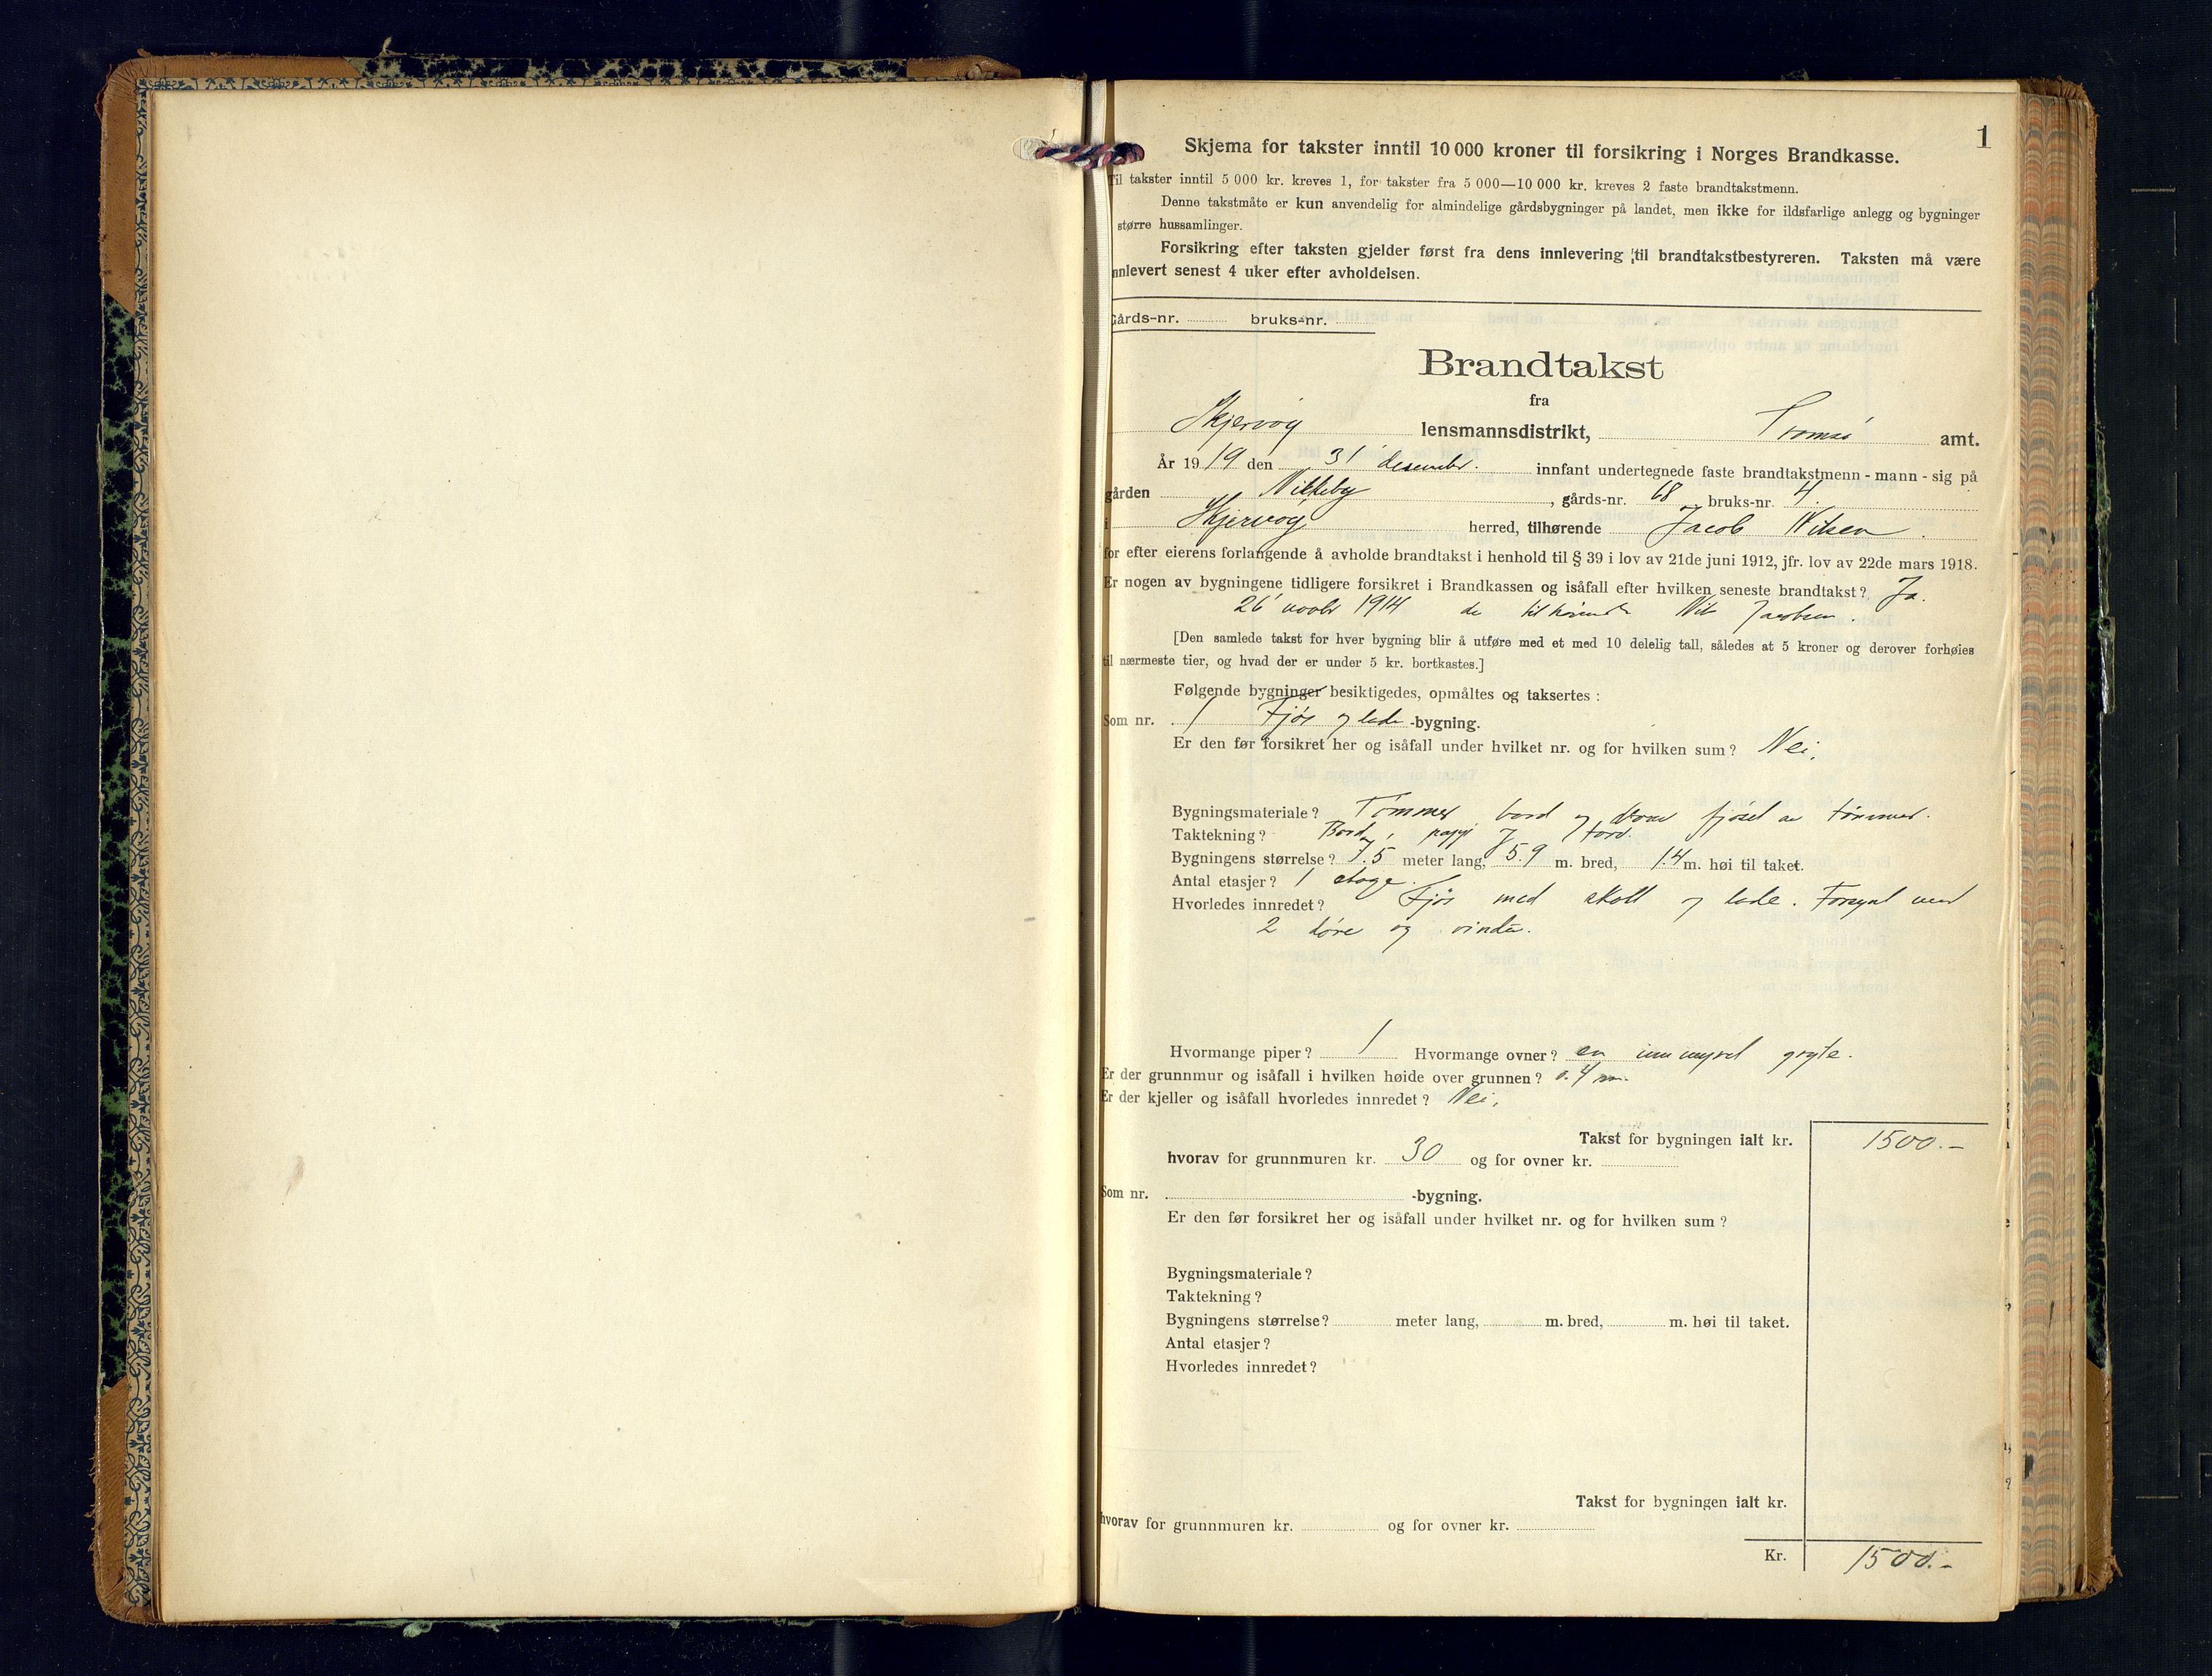 1
Skjema for takster inntil 10 000 kroner til forsikring i Norges Brandkasse.
Til takster inntil 5 000 kr. kreves 1, for takster fra 5 000—10 000 kr. kreves 2 faste brandtakstmenn.
Denne takstmåte er kun anvendelig for almindelige gårdsbygninger på landet, men ikke for ildsfarlige anlegg og bygninger
større hussamlinger.
Forsikring efter taksten gjelder først fra dens innlevering til brandtakstbestyreren. Taksten må være
nnlevert senest 4 uker efter avholdelsen.
Gårds-nr. bruks-nr.
Brandtakst
fra
Skjervøy lensmannsdistrikt, Tromsø amt.
År 1919 den 31 desembr. innfant undertegnede faste brandtakstmenn - mann - sig på
gården Nikkeby, gårds-nr. 68 bruks-nr. 4
i Skjervøy herred, tilhørende Jacob Nilsen.
for efter eierens forlangende å avholde brandtakst i henhold til § 39 i lov av 21de juni 1912, jfr. lov av 22de mars 1918.
Er nogen av bygningene tidligere forsikret i Brandkassen og isåfall efter hvilken seneste brandtakst? Ja.
26 novbr 1914 da Jacobsen.
[Den samlede takst for hver bygning blir å utføre med et med 10 delelig tall, således at 5 kroner og derover forhøies
til nærmeste tier, og hvad der er under 5 kr. bortkastes.]
Følgende bygninger besiktigedes, opmåltes og taksertes :
Som nr. 1 Fjøs og lade -bygning.
Er den før forsikret her og isåfall under hvilket nr. og for hvilken sum? Nei.
Bygningsmateriale? Tømmer, bord og fjøset av tømmer.
Taktekning? Bord, papp og torv.
Bygningens størrelse? 7.5 meter lang, 5.9 m. bred, 1.4 m. høi til taket.
Antal etasjer? 1 etage.
Hvorledes innredet? Fjøs med skott og lade. Forsynt med
2 døre og vindu.
Hvormange piper? 1 Hvormange ovner? en innmuret gryte.
Er der grunnmur og isåfall i hvilken høide over grunnen? 0.4 m.
Er der kjeller og isåfall hvorledes innredet? Nei.
Takst for bygningen ialt kr. 1500.-
hvorav for grunnmuren kr. 30 og for ovner kr.
Som nr. -bygning.
Er den før forsikret her og isåfall under hvilket nr. og for hvilken sum?
Bygningsmateriale?
Taktekning?
Bygningens størrelse? meter lang, m. bred, m. høi til taket.
Antal etasjer?
Hvorledes innredet?
Takst for bygningen ialt kr.
hvorav for grunnmuren kr. og for ovner kr.
Kr. 1500.-